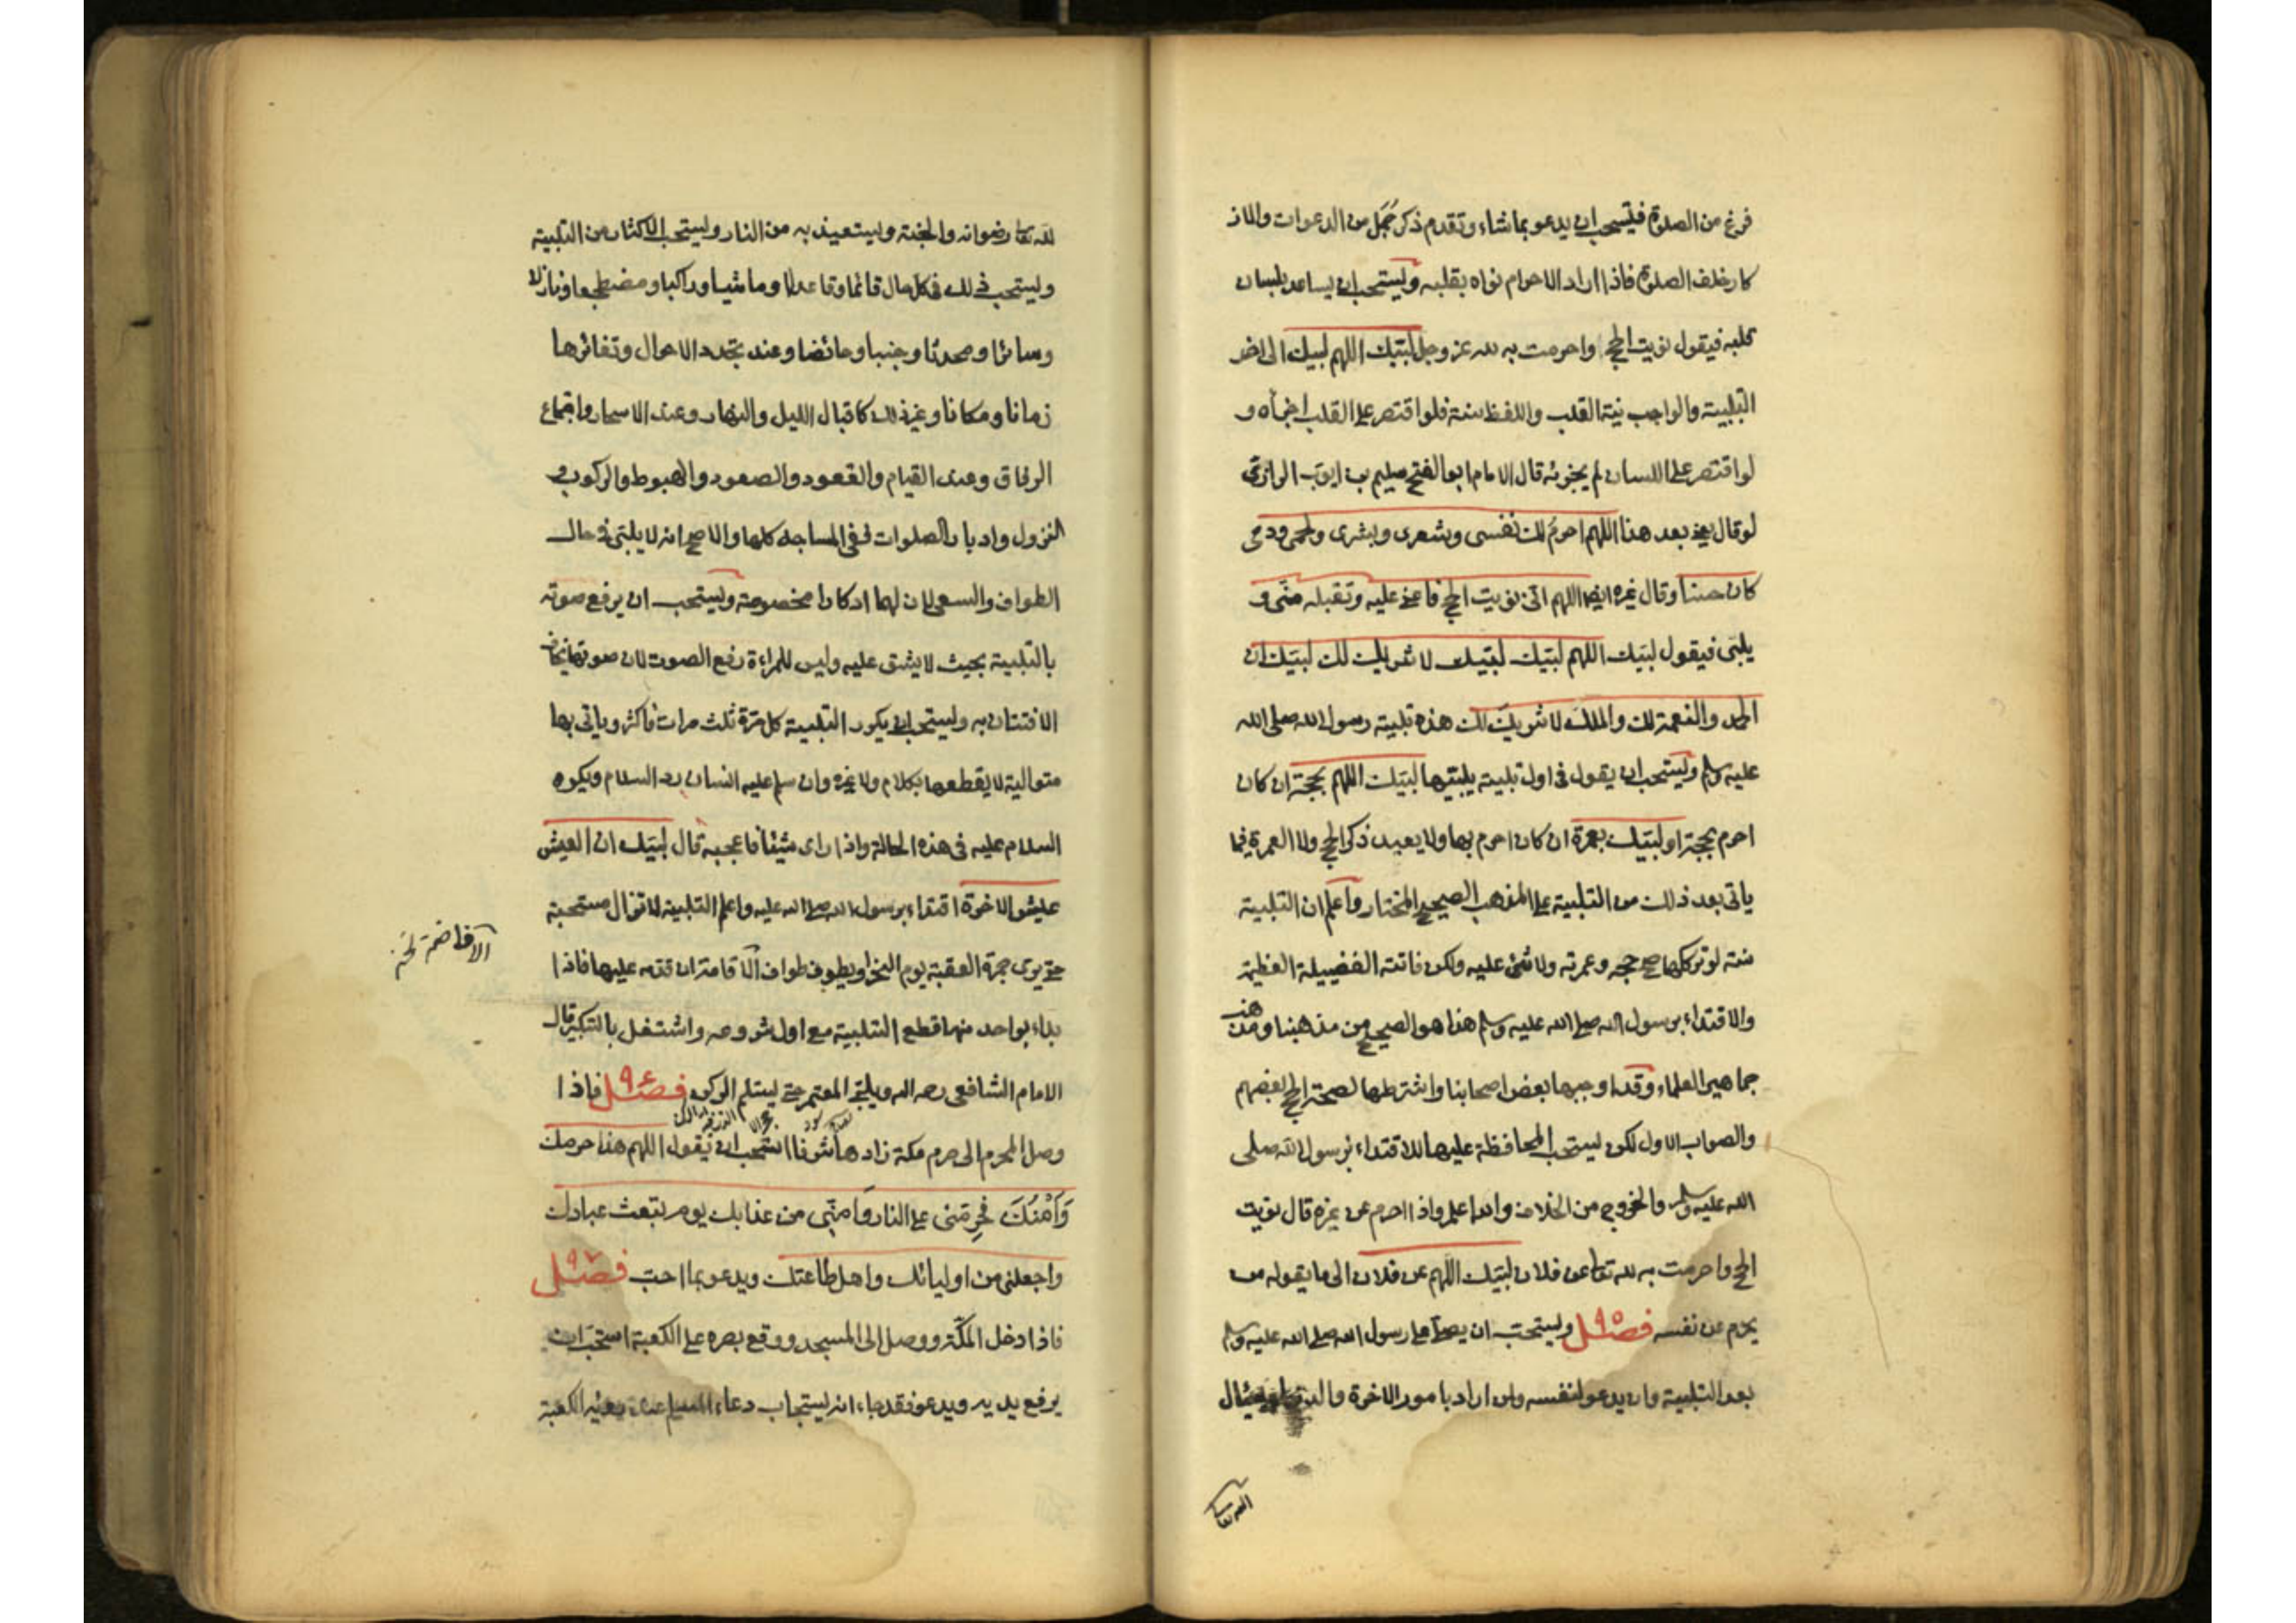 فرغ من الصلوة فليستحب ان يدعو بما شاء وتقدم ذكر جمل من الدعوات والاذ
كار خلف الصلوة فاذا اراد الاحرام نواه بقلبه ويستحب ان يساعد بلسان
قلبه فيقول نويت الحج واحرمت به لله عز وجل لبيك اللهم لبيك الى اخر
التلبية والواجب نية القلب واللفظ سنة فلو اقتصر على القلب اجزأه و
لو اقتصر على اللسان لم يجزئه قال الامام ابو الفتح سليم بن ايوب الرازى
لو قال يعنى بعد هذا اللهم احرم لك نفسى وشعرى وبشرى ولحمى ودمى
كان حسنا وقال غيره ايضا اللهم انى نويت الحج فاعنى عليه وتقبله منى و
يلبى فيقول لبيك اللهم لبيك لبيك لا شريك لك لبيك ان
الحمد والنعمة لك والملك لا شريك لك هذه تلبية رسول الله صلى الله
عليه وسلم ويستحب ان يقول فى اول تلبية يلبيها لبيك اللهم بحجة ان كان
احرم بحجة او لبيك بعمرة ان كان احرم بها ولا يعيد ذكر الحج ولا العمرة فيما
ياتى بعد ذلك من التلبية على المذهب الصحيح المختار واعلم ان التلبية
سنة لو تركها صح حجه وعمرته ولا شئ عليه ولكن فاتته الفضيلة العظيمة
والاقتداء برسول الله صلى الله عليه وسلم هذا هو الصحيح من مذهبنا ومذهب
جماهير العلماء وقد اوجبها بعض اصحابنا واشترطها لصحة الحج بعضهم
والصواب الاول لكن يستحب المحافظة عليها للاقتداء برسول الله صلى
الله عليه وسلم والخروج من الخلاف والله اعلم واذا احرم عن غيره قال نويت
الحج واحرمت به لله تعا عن فلان لبيك اللهم عن فلان الى ما يقوله من
يحرم عن نفسه فصل ٩٥ ويستحب ان يصلى على رسول الله صلى الله عليه وسلم
بعد التلبية وان يدعو لنفسه ولمن اراد بامور الاخرة والدنيا ويسئال
لله تعا رضوانه والجنة ويستعيذ به من النار ويستحب الاكثار من التلبية
ويستحب ذلك فى كل حال قائما وقاعدا وماشيا وراكبا ومضطجعا ونازلا
وسائرا ومحدثا وجنبا وحائضا وعند تجدد الاحوال وتغائرها
زمانا ومكانا وغير ذلك كاقبال الليل والنهار وعند الاسحار واجتماع
الرفاق وعند القيام والقعود والصعود والهبوط والركوب و
النزول وادبار الصلوات ففى المساجد كلها والاصح انه لا يلبى فى حال
الطواف والسعى لان لهما اذكارا مخصوصة ويستحب ان يرفع صوته
بالتلبية بحيث لا يشق عليه وليس للمراءة رفع الصوت لان صوتها يخاف
الافتتان به ويستحب ان يكرر التلبية كل مرة ثلث مرات فاكثر وياتى بها
متوالية لا يقطعها بكلام ولا غيره وان سلم عليه انسان رد السلام ويكره
السلام عليه فى هذه الحالة واذا راى شيئا فاعجبه قال لبيك ان العيش
عيش الاخرة اقتداء برسول الله صلى الله عليه واعلم التلبية لا تزال مستحبة
حتى يرمى جمرة العقبة يوم النحر او يطوف طواف الاقامة ان قدمه عليها فاذا
بداء بواحد منهما قطع التلبية مع اول شروعه واشتغل بالتكبير قال
الامام الشافعى رحمه الله ويلبى المعتمر حتى يستلم الركن فصل ٩٦ فاذا
وصل المحرم الى حرم مكة زادها شرفا استحب ان يقول اللهم هذا حرمك
وَاَمْنُكَ فحرِّمنى على النار وَاَمنّى من عذابك يوم تبعث عبادك
واجعلنى من اوليائك واهل طاعتك ويدعو بما احب فصل ٩٧
فاذا دخل المكة ووصل الى المسجد ووقع بصره على الكعبة استحب ان
يرفع يديه ويدعو فقد جاء انه يستجاب دعاء المسلم عند رؤية الكعبة